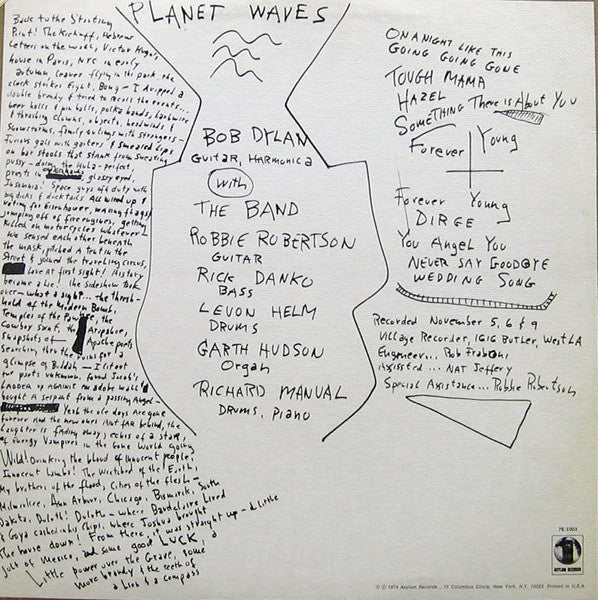 PLANET WAVES
Back to the Starting
Point! The Kickoff, Hebrew
letters on the wall, Victor Hugo's
house in Paris, NYC in early
autumn, leaves flying in the park, the
clock strikes Eight, Bong - I dropped a
double brandy & tried to recall the events...
beer halls & pin balls, polka bands, barbwire
& thrashing clowns, objects, headwinds &
snowstorms, family outings with strangers -
Furious gals with garters & smeared lips
on bar stools that stank from sweating
pussy - doing the Hula - perfect,
priests in glassy eyed,
Insomnia! Space guys off duty with
big dicks & ducktails All wired up &
voting for Eisenhower, waving flags &
jumping off of fire engines, getting
killed on motorcycles whatever -
We sensed each other beneath
the mask, pitched a tent in the
Street & joined the traveling circus,
love at first sight! History
became a lie! the sideshow took
over - what a sight... the thresh-
hold of the Modern Bomb,
Temples of the Pawnee, the
Cowboy saint, the Arapahoe,
snapshots of Apache poets
searching thru the ruins for a
glimpse of Buddah - I lit out
for parts unknown, found Jacob's
ladder up against an adobe wall &
bought A serpent from a passing Angel -
Yeah the ole days are gone
forever And the new ones Aint far behind, the
Laughter is fading away, echos of a star,
of Energy Vampires in the Gone World going
Wild! Drinking the blood of innocent people,
Innocent lambs! The Wretched of the Earth,
My brothers of the flood, Cities of the flesh -
Milwaukee, Ann Arbor, Chicago, Bismarck, South
Dakota, Duluth! Duluth - where Baudelaire Lived
& Goya cashed in his Chips, where Joshua brought
The house down! From there, it was straight up - a Little
jolt of Mexico, and some good LUCK, a
Little power over the Grave, some
more brandy & the teeth of
a Lion & a compass
BOB DYLAN
GUITAR, HARMONICA
with
THE BAND
ROBBIE ROBERTSON
GUITAR
RICK DANKO
BASS
LEVON HELM
DRUMS
GARTH HUDSON
Organ
RICHARD MANUAL
DRUMS, PIANO
ON A NIGHT LIKE THIS
GOING GOING GONE
TOUGH MAMA
HAZEL
SOMETHING There is About You
Forever Young
Forever Young
DIRGE
You Angel You
NEVER SAY GOODBYE
WEDDING SONG
Recorded November 5, 6 & 9
Village Recorder, 1616 Butler, West LA
Engineer... Rob Fraboni
Assisted... NAT Jeffery
Special Assistance... Robbie Robertson
7E-1003
ASYLUM RECORDS
℗ © 1974 Asylum Records . 15 Columbus Circle, New York, N.Y. 10023. Printed in U.S.A.